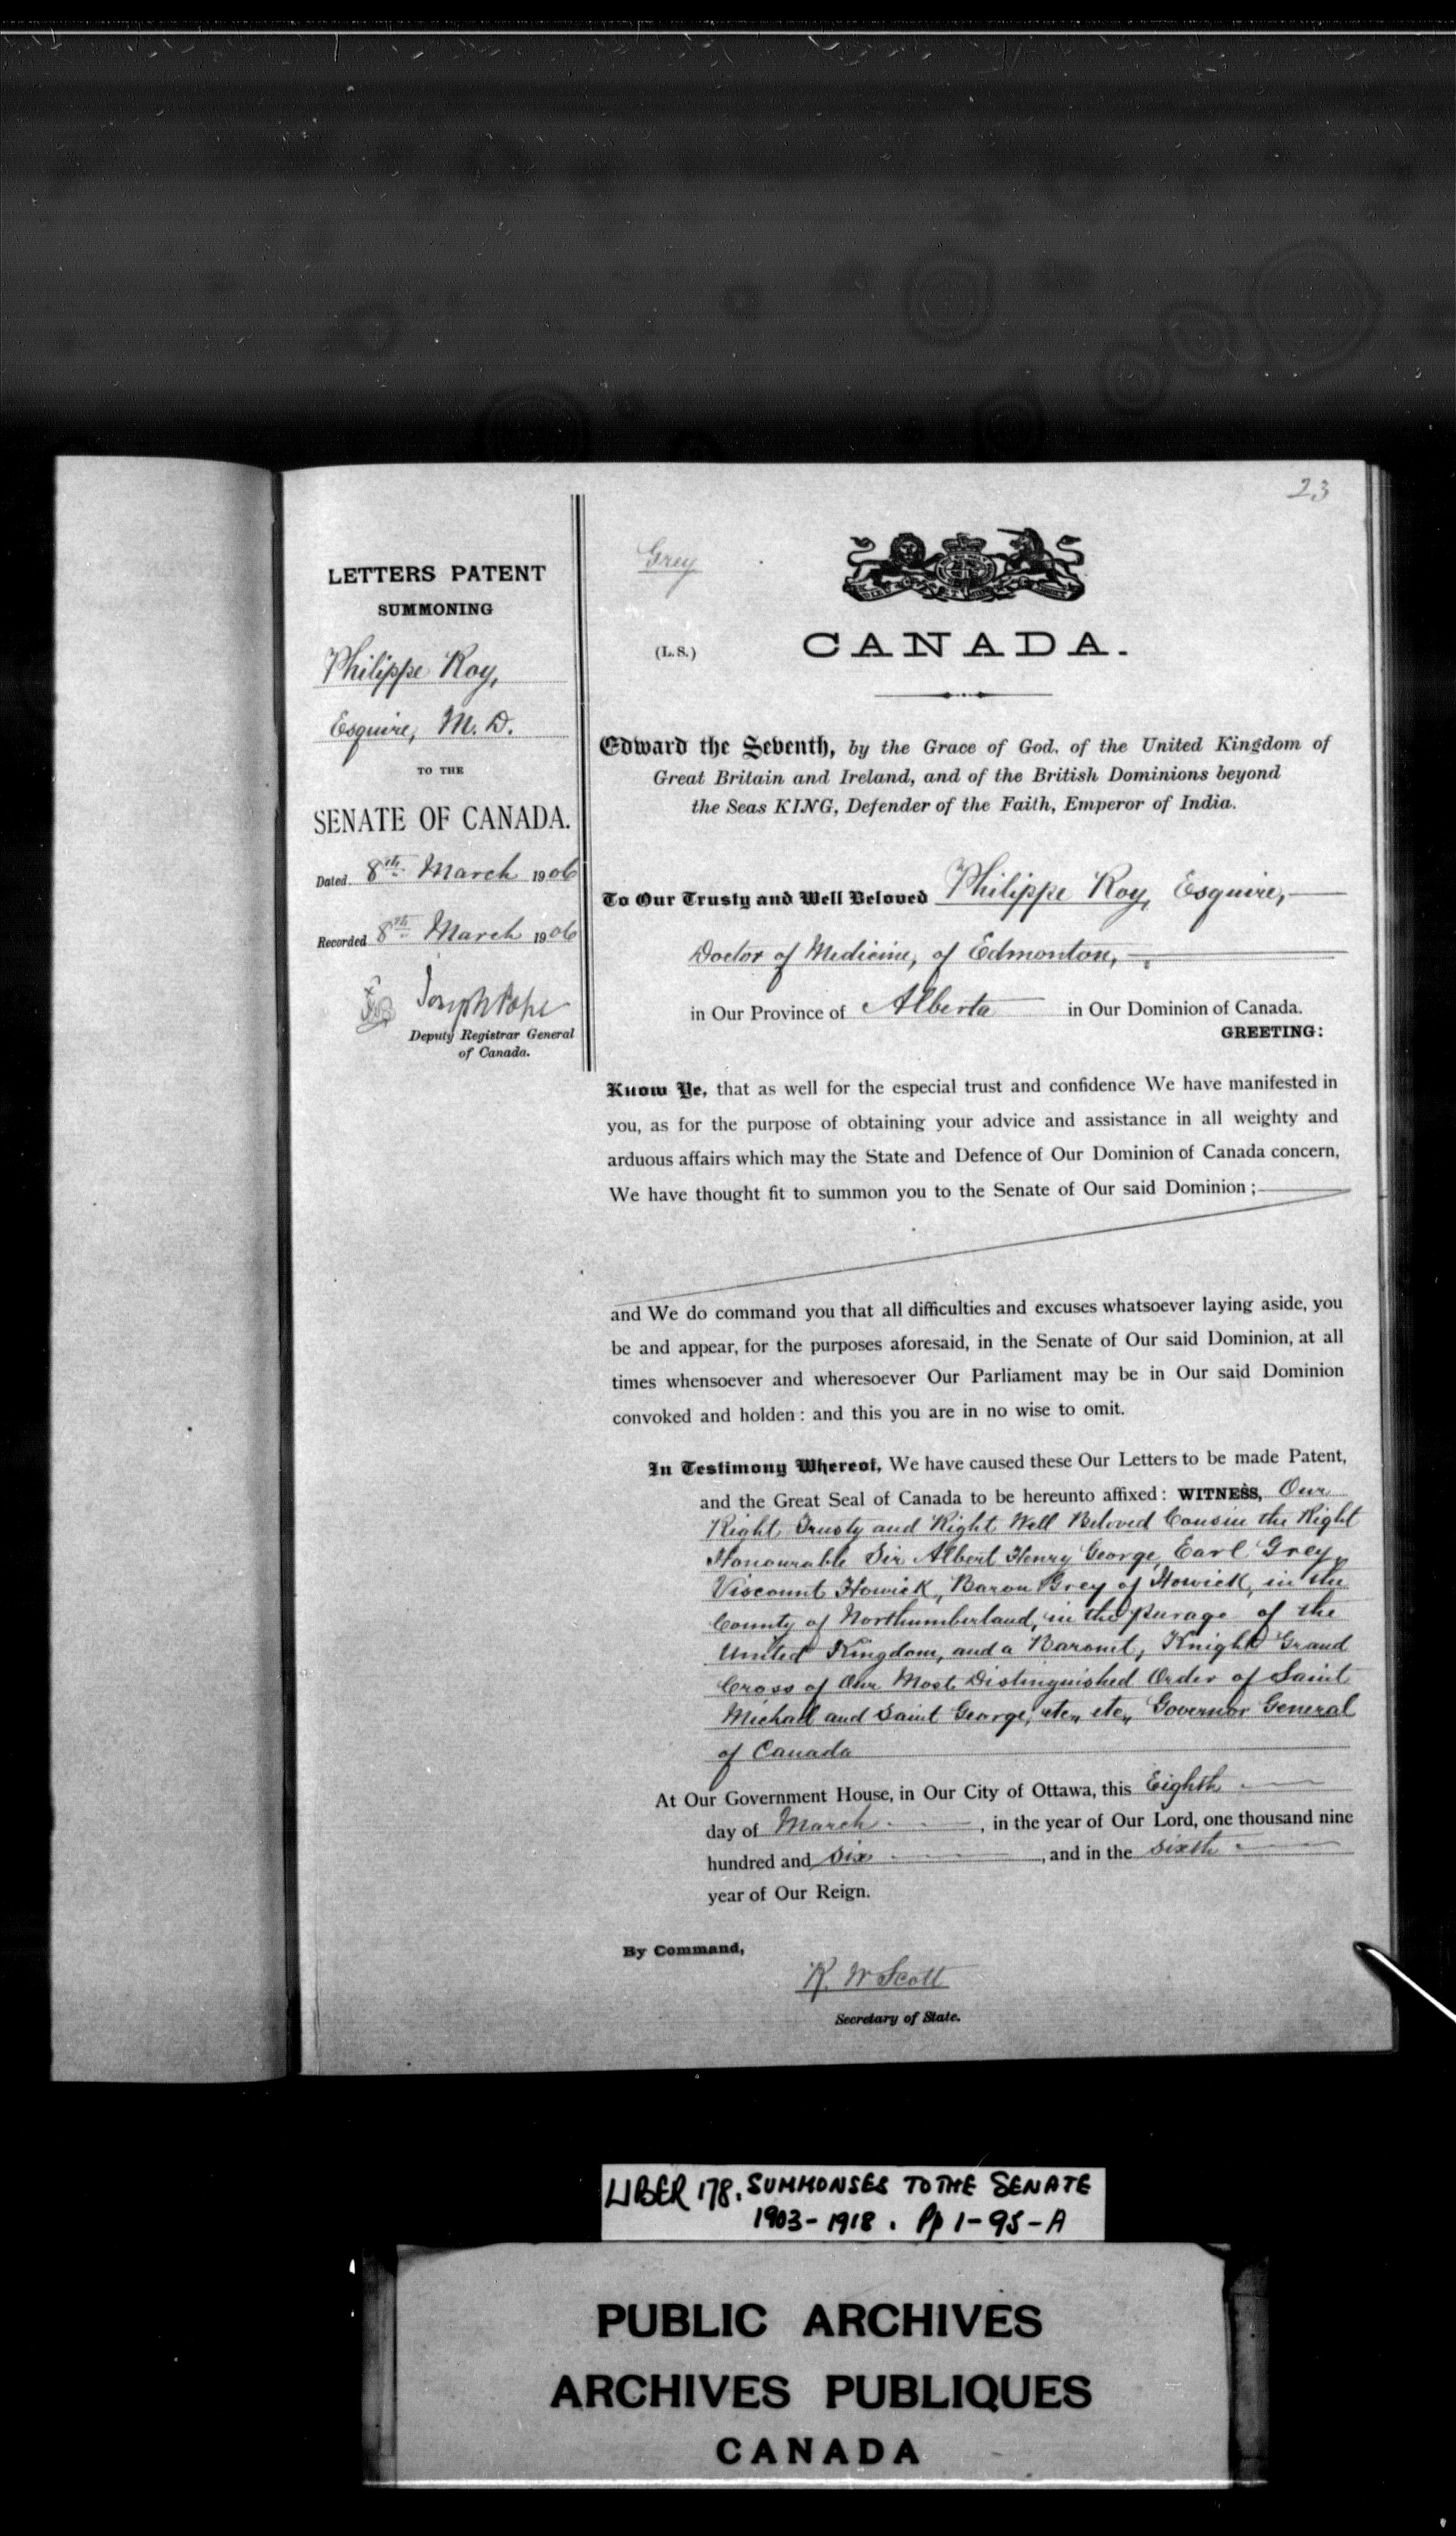 23
LETTERS PATENT
SUMMONING
Philippe Roy,
Esquire, M.D.
TO THE
SENATE OF CANADA.
Dated 8th March 1906
Recorded 8th March 1906
Joseph Pope
Deputy Registrar General
of Canada.
Grey
(L. S.)
CANADA.
Edward the Seventh, by the Grace of God, of the United Kingdom of
Great Britain and Ireland, and of the British Dominions beyond
the Seas KING, Defender of the Faith, Emperor of India.
To Our Trusty and Well Beloved Philippe Roy, Esquire,
Doctor of Medicine, of Edmonton,
in Our Province of Alberta in Our Dominion of Canada.
GREETING:
Know Ye, that as well for the especial trust and confidence We have manifested in
you, as for the purpose of obtaining your advice and assistance in all weighty and
arduous affairs which may the State and Defence of Our Dominion of Canada concern,
We have thought fit to summon you to the Senate of Our said Dominion;
and We do command you that all difficulties and excuses whatsoever laying aside, you
be and appear, for the purposes aforesaid, in the Senate of Our said Dominion, at all
times whensoever and wheresoever Our Parliament may be in Our said Dominion
convoked and holden: and this you are in no wise to omit.
In Testimony Whereof, We have caused these Our Letters to be made Patent,
and the Great Seal of Canada to be hereunto affixed: WITNESS, Our
Right Trusty and Right Well Beloved Cousin the Right
Honourable Sir Albert Henry George, Earl Grey,
Viscount Howick, Baron Grey of Howick, in the
County of Northumberland, in the peerage of the
United Kingdom, and a Baronet, Knight Grand
Cross of Our Most Distinguished Order of Saint
Michael and Saint George, etc., etc., Governor General
of Canada
At Our Government House, in Our City of Ottawa, this Eighth
day of March, in the year of Our Lord, one thousand nine
hundred and six, and in the sixth
year of Our Reign.
By Command,
R. W Scott
Secretary of State.
LIBER 178. SUMMONSES TO THE SENATE
1903-1918. Pp 1-95-A
PUBLIC ARCHIVES
ARCHIVES PUBLIQUES
CANADA